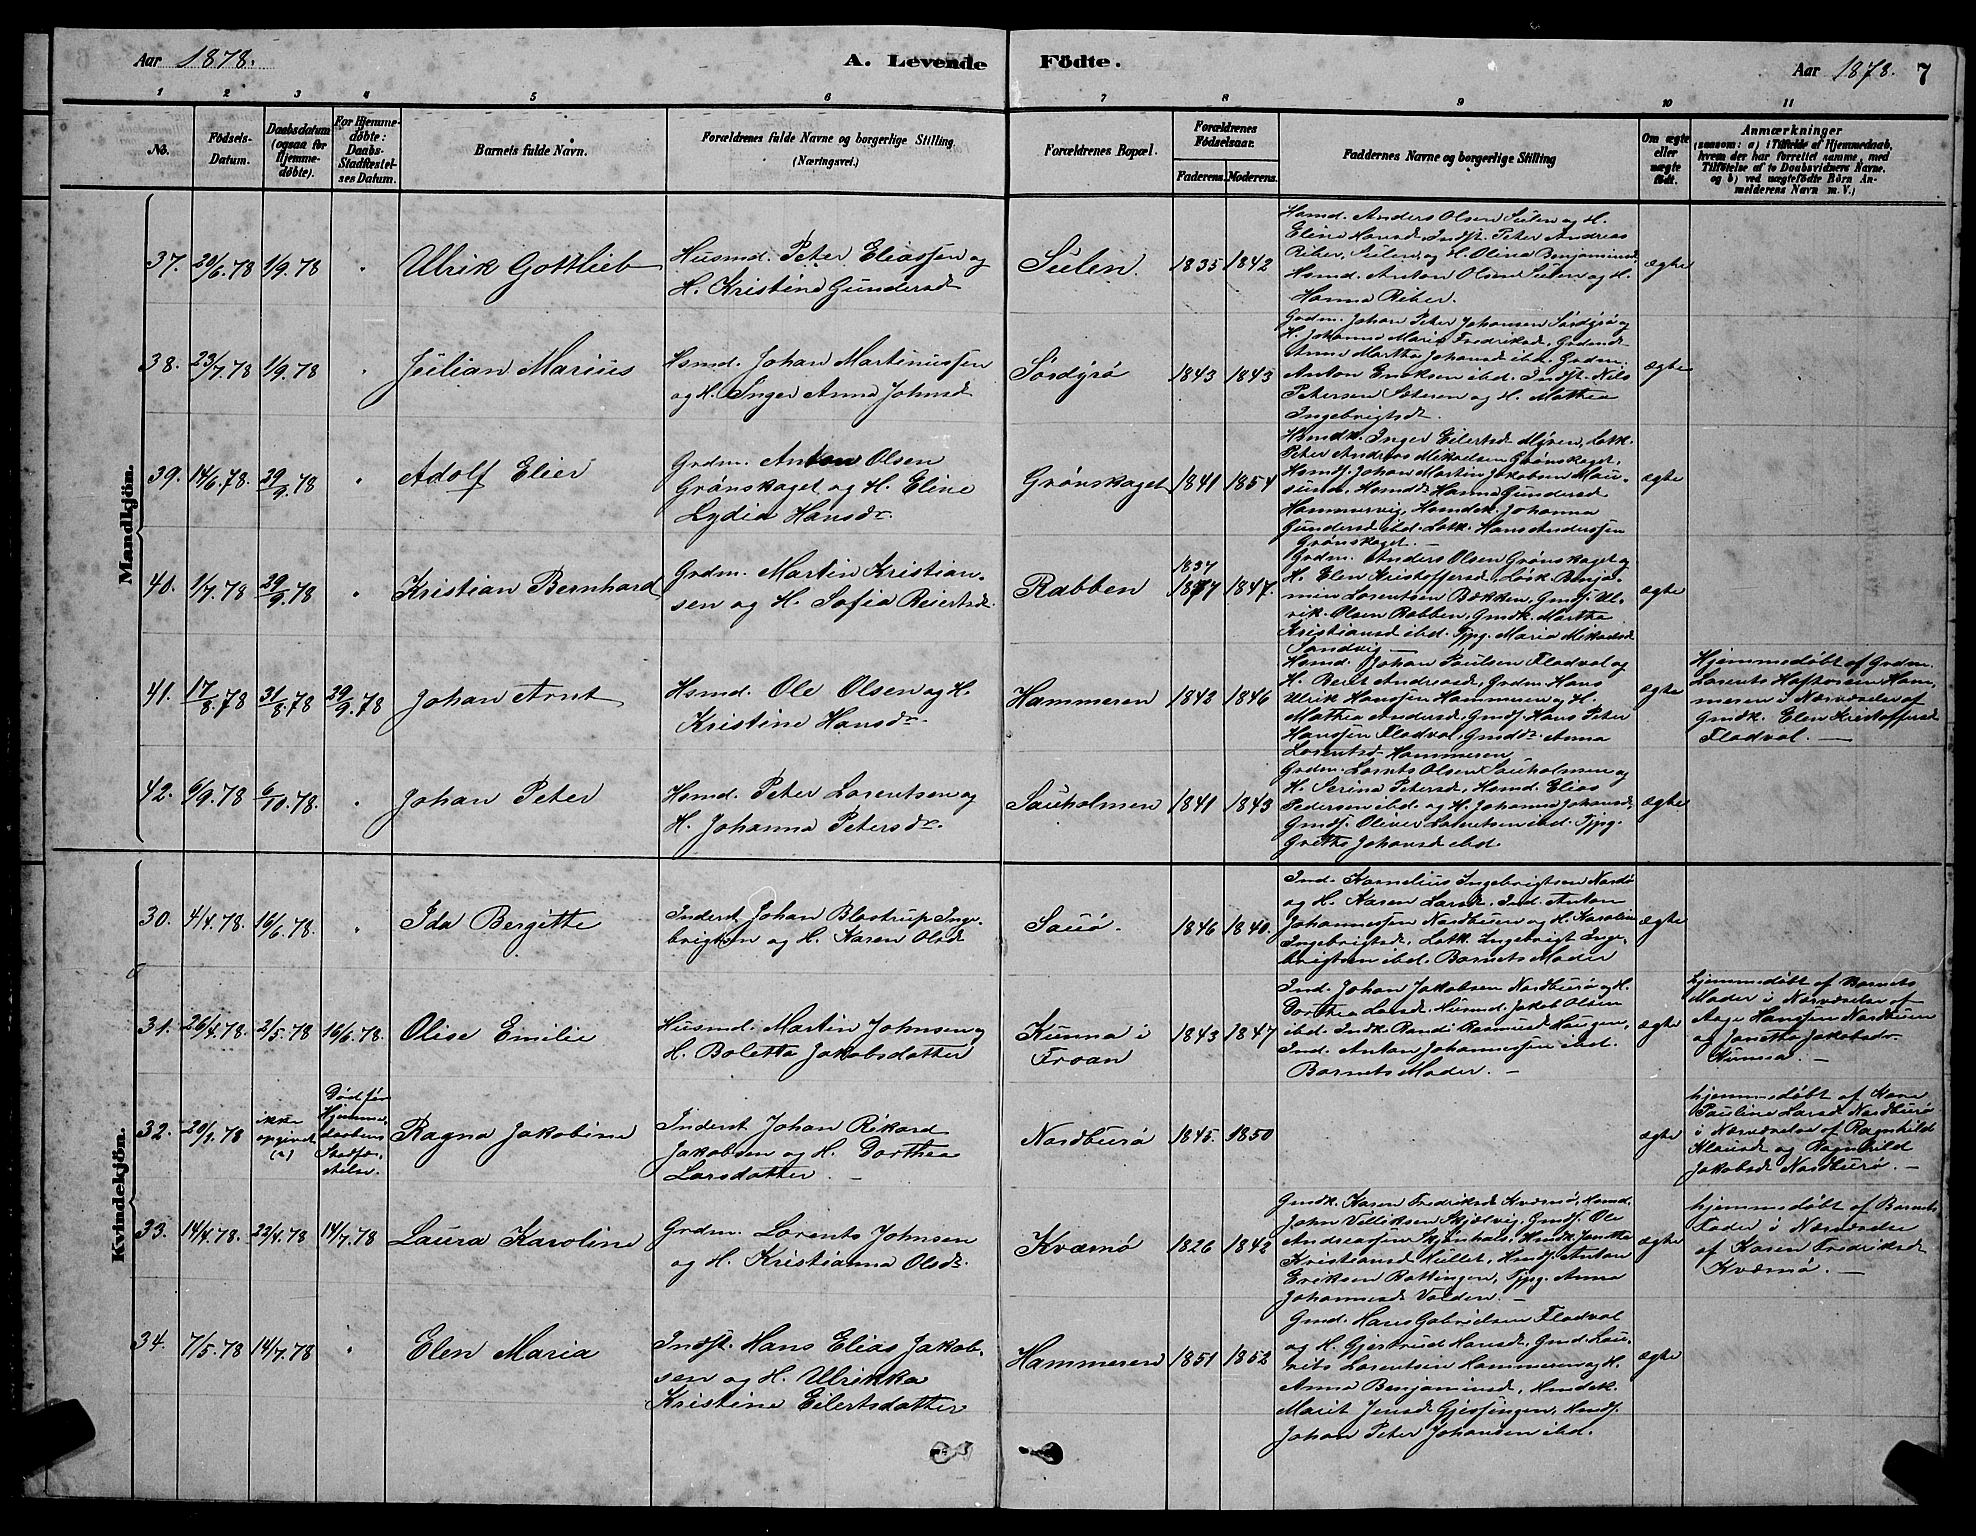 Aar 1878.
A. Levende Födte.
Aar 1878. 7
1 2 3 4 5 6 7 8 9 10 11
No.
Födsels-
Datum.
Daabsdatum
(ogsaa for
Hjemme-
döbte).
For Hjemme-
döbte:
Daabs-
Stadfæstel-
ses Datum.
Barnets fulde Navn.
Forældrenes fulde Navne og borgerlige Stilling
(Næringsvei.)
Forældrenes Bopæl.
Forældrenes
Födselsaar.
Faderens. Moderens.
Faddernes Navne og borgerlige Stilling
Om ægte
eller
uægte
födt.
Anmærkninger
(saasom: a) i Tilfælde af Hjemmedaab,
hvem der har forrettet samme, med
Tilföielse af to Daabsvidners Navne.
og b) ved uægtefödte Börn An-
melderens Navn m. V.)
Mandkjön.
37. 20/6.78 1/9.78 " Ulrik Gottlieb
Husmd. Peter Eliassen og
H. Kristine Gundersd
Sulen. 1835 1842
Hsmd. Anders Olsen Sulen og H.
Eline Hansd. Indst. Peter Andreas
Riber, Sulen og H. Olina Benjaminsd.
Hsmd. Anton Olsen Sulen og H.
Hanna Riber.
ægte
38. 23/7.78 1/9.78 " Julian Marius
Hsmd. Johan Martinussen
og H. Inger Anna Johnsd
Sördyrö 1843 1843
Grdm. Johan Peter Johansen Sördyrö og
H. Johanna Marie Fredriksd.
Anne Martha Johansd ibd. Grdm.
Anton Eriksen ibd. Indst. Nils
Petersen og H. Mathea
Ingebrigtsd.
ægte
39. 14/6.78. 29/9.78 " Adolf Elier
Grdm. Anton Olsen
Grönskaget og H. Eline
Lydia Hansdr.
Grönskaget 1841 1854
Hsmdk. Inger Eilertsd Myren, Lotk.
Peter Andreas Mikaelsen Grönskaget,
Hsmds. Johan Martin Jakobsen Mau-
sund, Hsmdd. Hanna Gundersd
Hammervig, Hsmdsk. Johanna
Gundersd ibd. Lotk. Hans Anderssen
Grönskaget. —
ægte
40. 1/7.78 29/9.78 " Kristian Bernhard
Grdm. Martin Kristian-
sen og H. Sofia Reiertsd.
Rabben 1837
1877 1847.
Grdm. Anders Olsen Grönskaget og
H. Elen Kristoffersd. Benja-
min Lorentsen Bekken, Gmds. Ul-
rik Olsen Rabben, Gmdk. Martha
Kristiansd ibd. Tjpg. Maria Mikaelsd
Sandvig —
ægte
41. 17/8.78 31/8.78 29/9.78 Johan Arnt
Hsmd. Ole Olsen og H.
Kristine Hansdr.
Hammeren 1842 1846
Hsmd. Johan Paulsen Fladval og
H. Berit Andreasd, Grdm. Hans
Ulrik Hanssen Hammeren og H.
Mathea Andersd, Gmds. Hans Peter
Hanssen Fladval, Gmddr. Anna
Lorentsd Hammeren
ægte
Hjemmedöbt af Grdm.
Lorents Haftorsen Ham-
meren i Nærværelse af
Gmdk. Elen Kristoffersd
Fladval. —
42. 6/9.78 6/10.78. " Johan Peter
Hsmd. Peter Lorentsen og
H. Johanna Petersdr.
Sauholmen 1841 1843
Grdm. Lornts Olsen Sauholmen og
H. Serina Petersd. Hsmd. Elias
Pedersen ibd. og H. Johanna Johansd.
Gmds. Oliver Lorentsen ibd. Tjpg.
Grethe Johansd ibd.
ægte
Kvindekjön.
30. 4/4.78. 16/6.78. " Ida Bergitte
Inderst Johan Blostrup Inge-
brigtsen og H. Karen Olsd
Sauö. 1846 1840.
Ind. Kornelius Ingebrigtsen Nordö
og H. Karen Larsd. Ind. Anton
Johannessen Nordbuen og H. Karolin
Ingebrigtsd. Lotk. Ingebrigt Inge-
brigtsen ibd. Barnets Moder
ægte
31. 26/4.78. 2/5.78 16/6.78. Olise Emilie
Husmd. Martin Johnsen og
H. Boletta Jakobsdatter
Kunna i
Froan 1843 1847
Ind. Johan Jakobsen Nordburö og H.
Dorthea Larsd. Husmd. Jakob Olsen
ibd. Indk. Randi Rasmusd Haugen,
Ind. Anton Johannessen ibd.
Barnets Moder. —
ægte
hjemmedöbt af Barnets
Moder i Nærværelse af
Aage Hanssen Nordbuen
og Jonetta Jakobsdr.
Kunna. —
32. 20/3.78 ikke
opgivet
(a)
Död för
Hjemme-
daabens
Stadfæ-
stelse.
Ragna Jakobine
Inderst Johan Rikard
Jakobsen og H. Dorthea
Larsdatter. —
Nordburö 1845. 1850
ægte
hjemmedöbt af Kone
Pauline Larsd Nordburö
i Nærværelse af Ragnhild
Klausd og Ragnhild
Jakobsd Nordburö. —
33. 14/4.78. 22/4.78 14/7.78 Laura Karoline
Grdm. Lorents Johnsen
og H. Kristianna Olsdr.
Kværnö 1826 1842
Gmdk. Karen Fredriksd Kværnö, Hsmd.
John Villiksen Skjælvig, Gmds. Ole
Andreassen Skjønhals, Hsmdk. Jonetta
Kristiansd Hullet, Hmds. Anton
Eriksen Rottingen, Tjpg. Anna
Johannesd Valden. —
ægte
hjemmedöbt af Barnets
Fader i Nærværelse
af Karen Fredriksd
Kværnö. —
34. 7/5.78 14/7.78 " Elen Maria
Indst. Hans Elias Jakob-
sen og H. Ulrikka
Kristine Eilertsdatter
Hammeren 1851 1852
Gmd. Hans Gabrielsen Fladval
og H. Gjertrud Hansd. Gmd. Lau-
rits Lorentsen Hammeren og H.
Anna Benjaminsd, Hmdsk.
Marit Jensd Gjessingen, Hmds.
Johan Peter Johansen ibd.
ægte